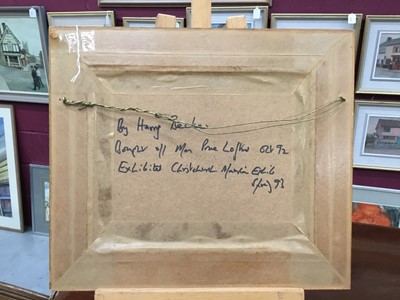 By Harry Becker
Bought off Mrs Prue Loftus Oct 92
Exhibited Christchurch Mansion Exhib
Spring 93